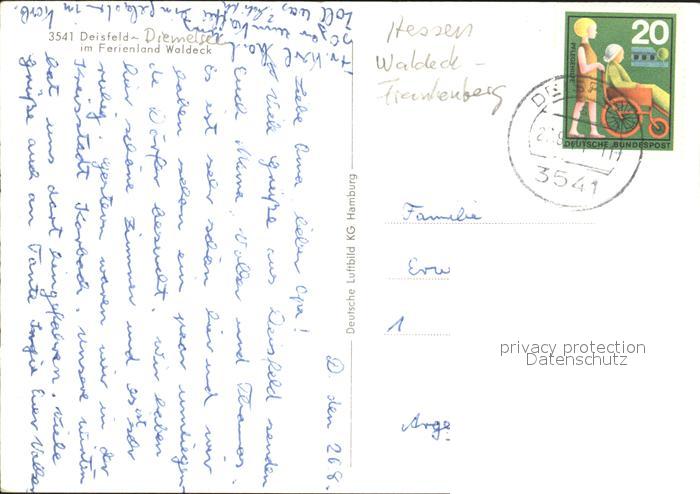 3541 Deisfeld - Diemelsee
im Ferienland Waldeck
Hessen
Waldeck -
Frankenberg
20
DEUTSCHE BUNDESPOST
3541
Deutsche Luftbild KG Hamburg
D. den 26.8.
Liebe Oma, lieber Opa!
Viele Grüße aus Deisfeld senden
Euch Mama, Volker und Thomas.
Es ist sehr schön hier und wir
haben schon ein paar umliegen-
de Dörfer besucht. Wir haben
hier schöne Zimmer und es ist sehr
ruhig. Gestern waren wir in der
Kreisstadt Korbach. Unsere Wirtin
hat uns dort hingefahren. Viele
Grüße auch an Tante Euer Volker
Familie
Erw
1
Arge
privacy protection
Datenschutz